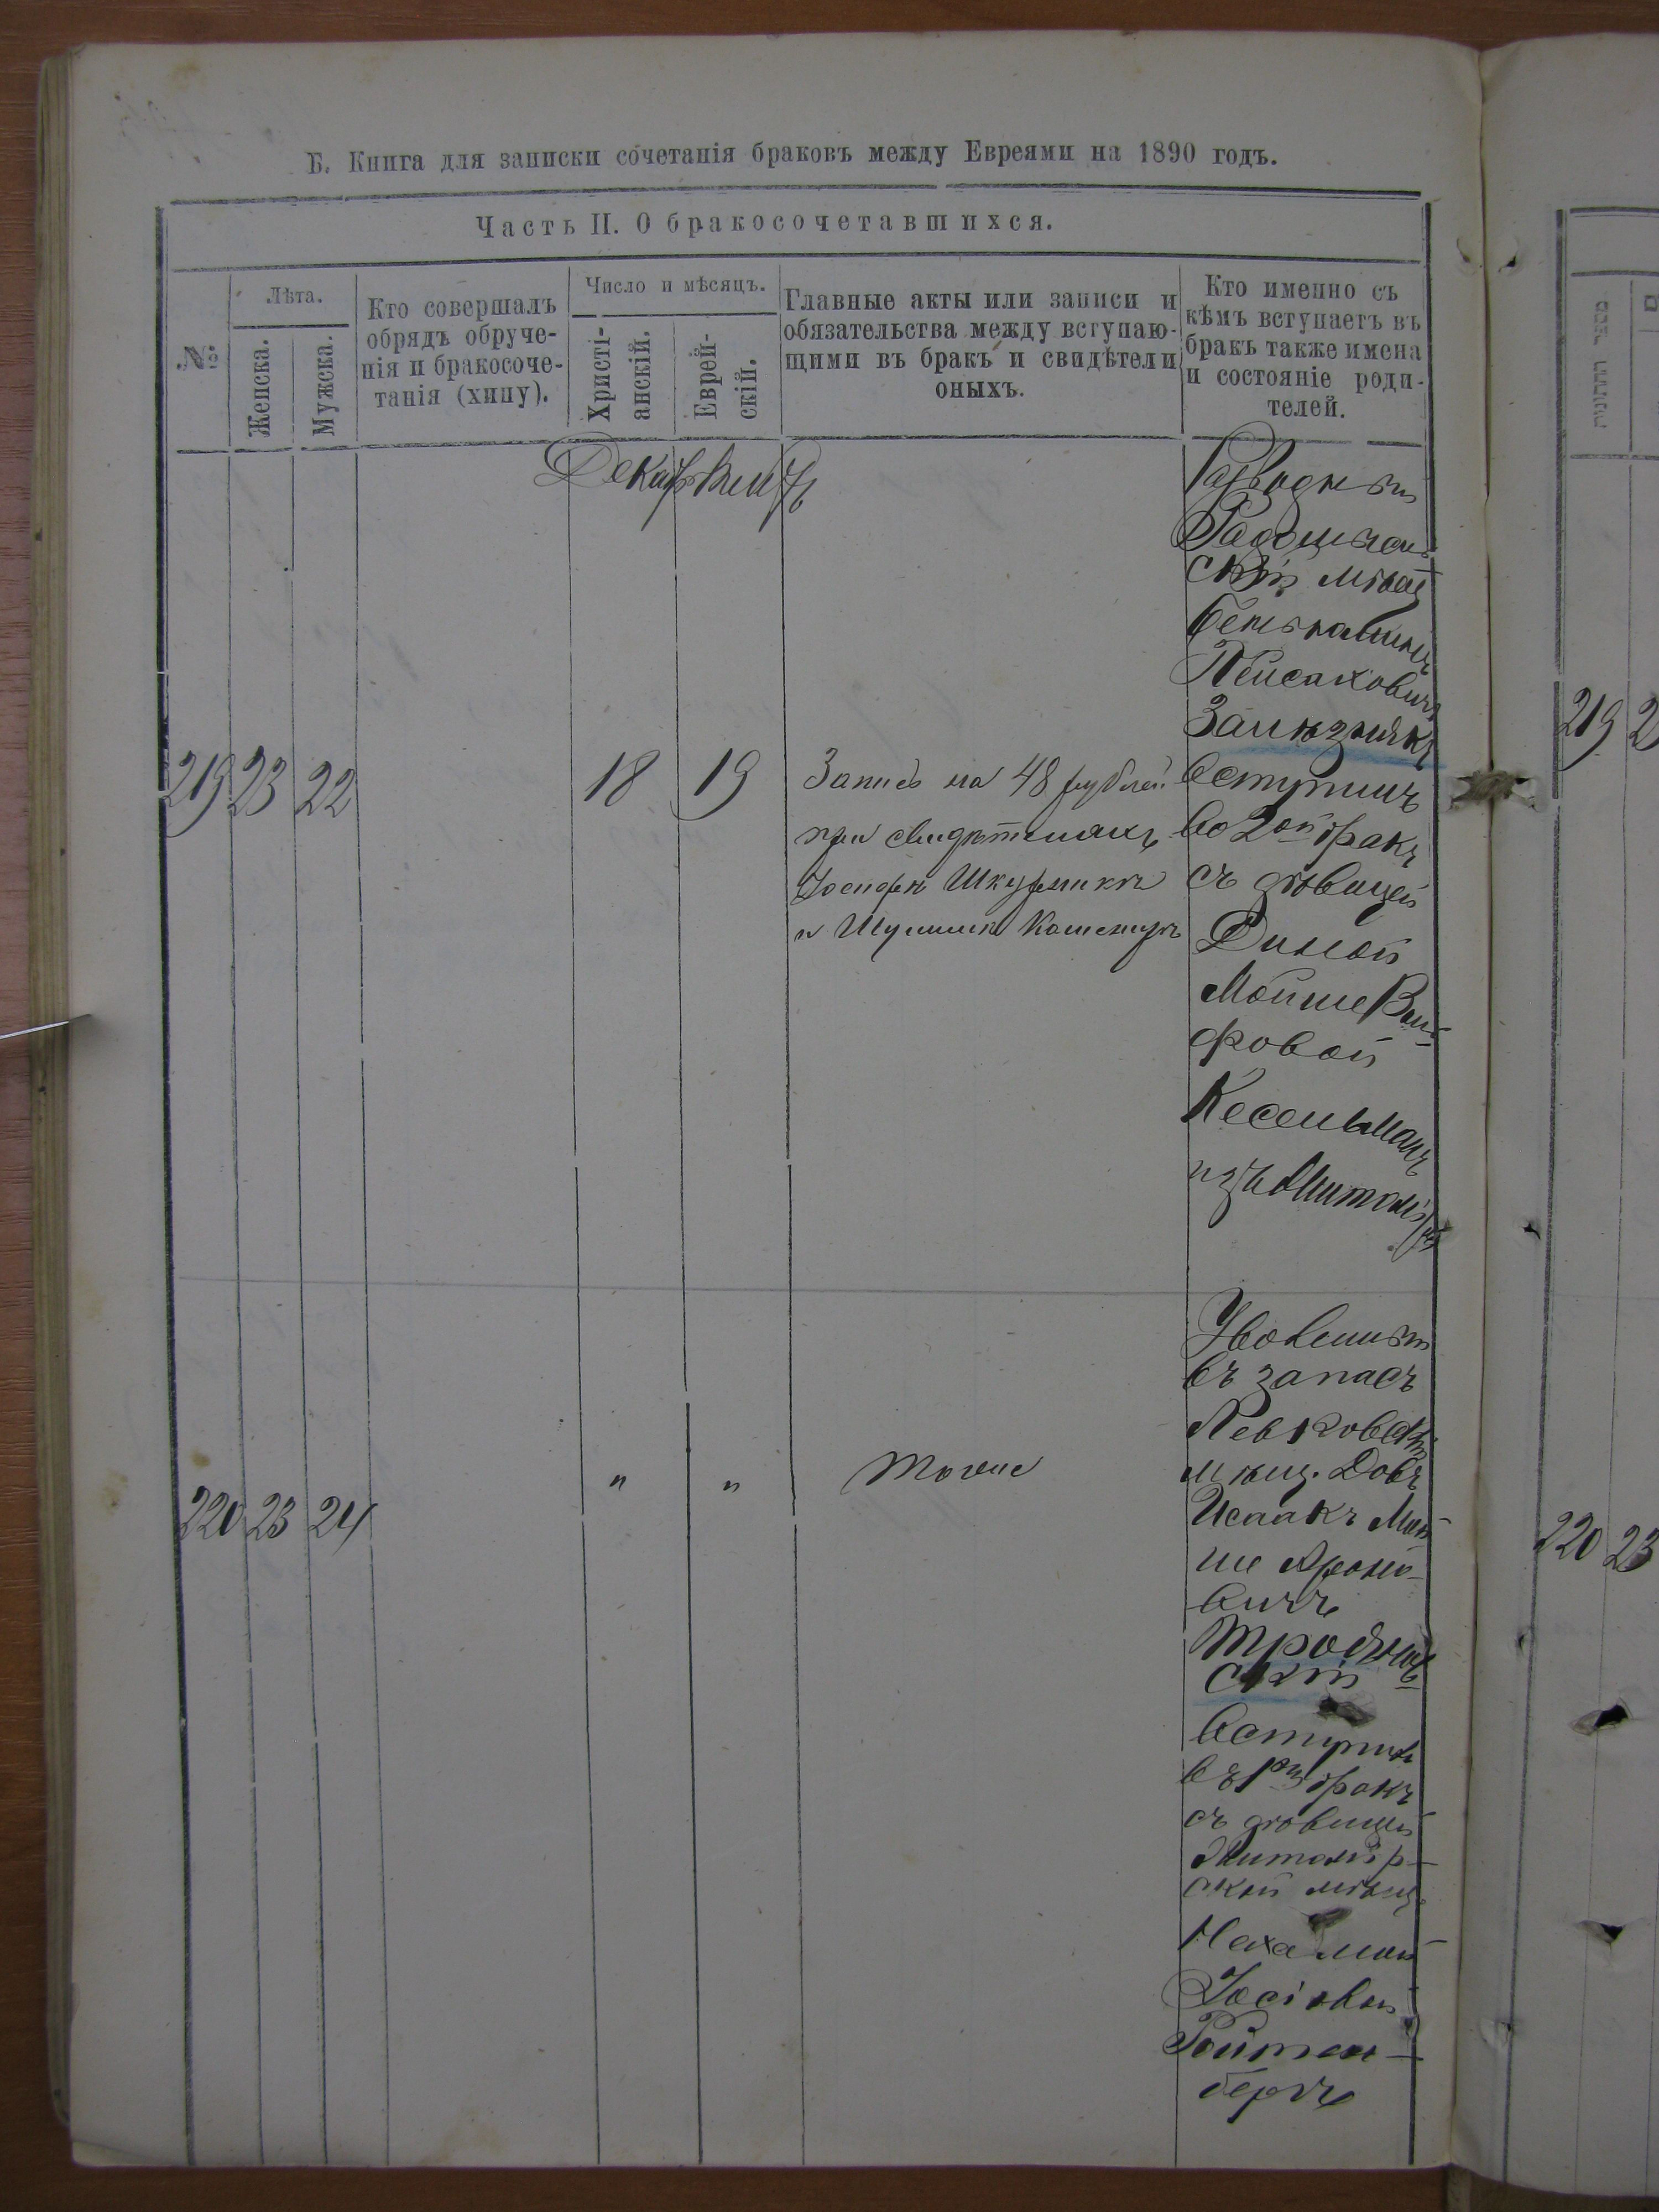 Б. Книга для записки сочетанія браковъ между Евреями на 1890 годъ.
Часть II. О бракосочетавшихся.
№
Лѣта.
Женска.
Мужска.
Кто совершалъ
обрядъ обруче-
нія и бракосоче-
танія (хипу).
Число и мѣсяцъ.
Христі-
анскій.
Еврей-
скій.
Главные акты или записи и
обязательства между вступаю-
щими въ бракъ и свидѣтели
оныхъ.
Кто именно съ
кѣмъ вступаетъ въ
бракъ также имена
и состояніе роди-
телей.
Разводный
скій мѣщ
Пейсаховичъ
219 23 22
18 19
Запись на 48 рублей
при свидѣтеляхъ
Іосифѣ Шкурникѣ
и
вступилъ
во 2ой бракъ
съ дѣвицей
Диной
Мойше Воль-
фовой
Кесельманъ
изъ Житомира
220 23 24
" "
тоже
Уволенный
въ запасъ
Левковскій
мѣщ. Довъ
Исаакъ Мой-
ше Ароно-
вичъ
Троянов-
скій
вступилъ
въ 1ый бракъ
съ дѣвицей
Житомір-
ской мѣщ.
Нехамой
Іосіовой
Ройтен-
бергъ
219 2
220 23